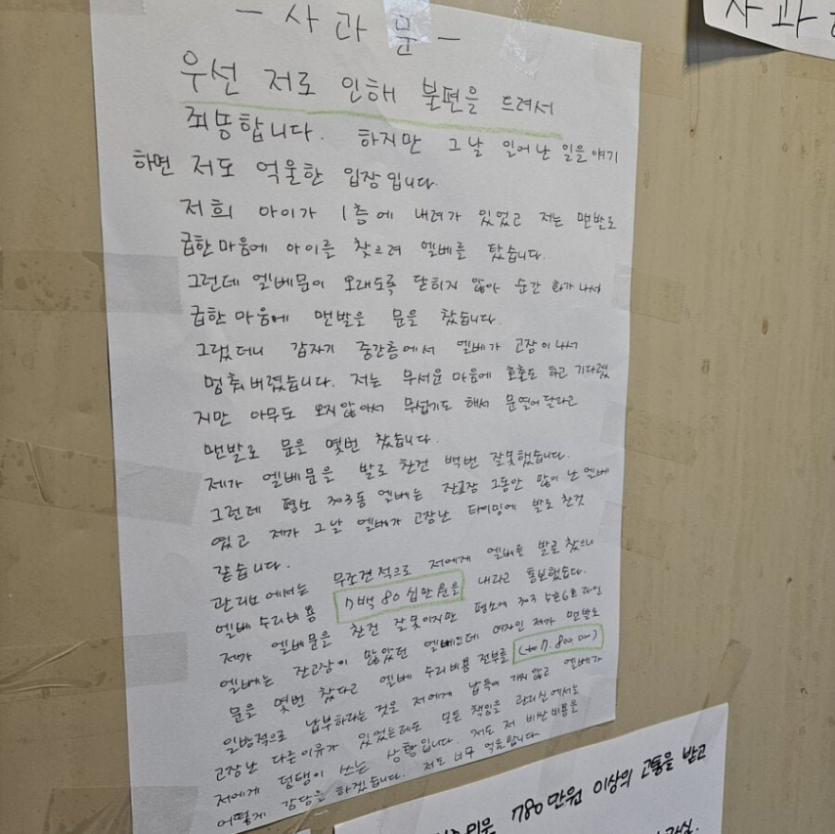 - 사 과 문 -
우선 저로 인해 불편을 드려서
죄송합니다. 하지만 그날 일어난 일을 얘기
하면 저도 억울한 입장입니다.
저희 아이가 1층에 내려가 있었고 저는 맨발로
급한 마음에 아이를 찾으려 엘베를 탔습니다.
그런데 엘베문이 오래도록 닫히지 않아 순간 화가 나서
급한 마음에 맨발로 문을 찼습니다.
그랬더니 갑자기 중간층에서 엘베가 고장이 나서
멈춰버렸습니다. 저는 무서운 마음에 호출도 하고 기다렸
지만 아무도 오지 않아서 무섭기도 해서 문 열어 달라고
맨발로 문을 몇번 찼습니다.
제가 엘베문을 발로 찬건 백번 잘못했습니다.
그런데 평소 303동 엘베는 잔고장 그동안 많이 난 엘베
였고 제가 그날 엘베가 고장난 타이밍에 발로 찬것
같습니다.
관리소에서는 무조건적으로 저에게 엘베를 발로 찼으니
엘베 수리비용 7백 80 십만원을 내라고 통보했습니다.
제가 엘베문을 찬건 잘못이지만 평소에 303 5호6호 라인
엘베는 잔고장이 많았던 엘베인데 여자인 제가 맨발로
문을 몇번 찼다고 엘베 수리비용 전부를 (7.800.000)
일방적으로 납부하라는 것은 저에게 납득이 가지 않고 엘베가
고장난 다른이유가 있었는데도 모든 책임을 관리실에서는
저에게 덤탱이 쓰는 상황입니다. 저도 저 비싼 비용을
어떻게 감당을 하겠습니까. 저도 너무 억울합니다.
사 과
780만원 이상의 고통을 받고